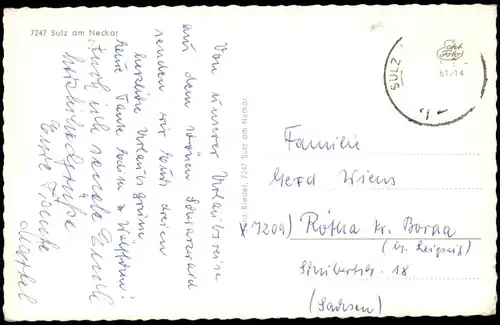 7247 Sulz am Neckar
Von unserer Urlaubsreise
aus dem schönen Schwarzwald
senden wir Euch dreien
herzliche Urlaubsgrüsse
Eure Tante &
Auch ich sende Euch
herzliche Grüße
Eure Tante
rd. Riedel, 7247 Sulz am Neckar
SULZ
61/14
Familie
Gerd Wiens
7209) Rötha Kr. Borna
(bei Leipzig)
Schubertstr. 18
(Sachsen)